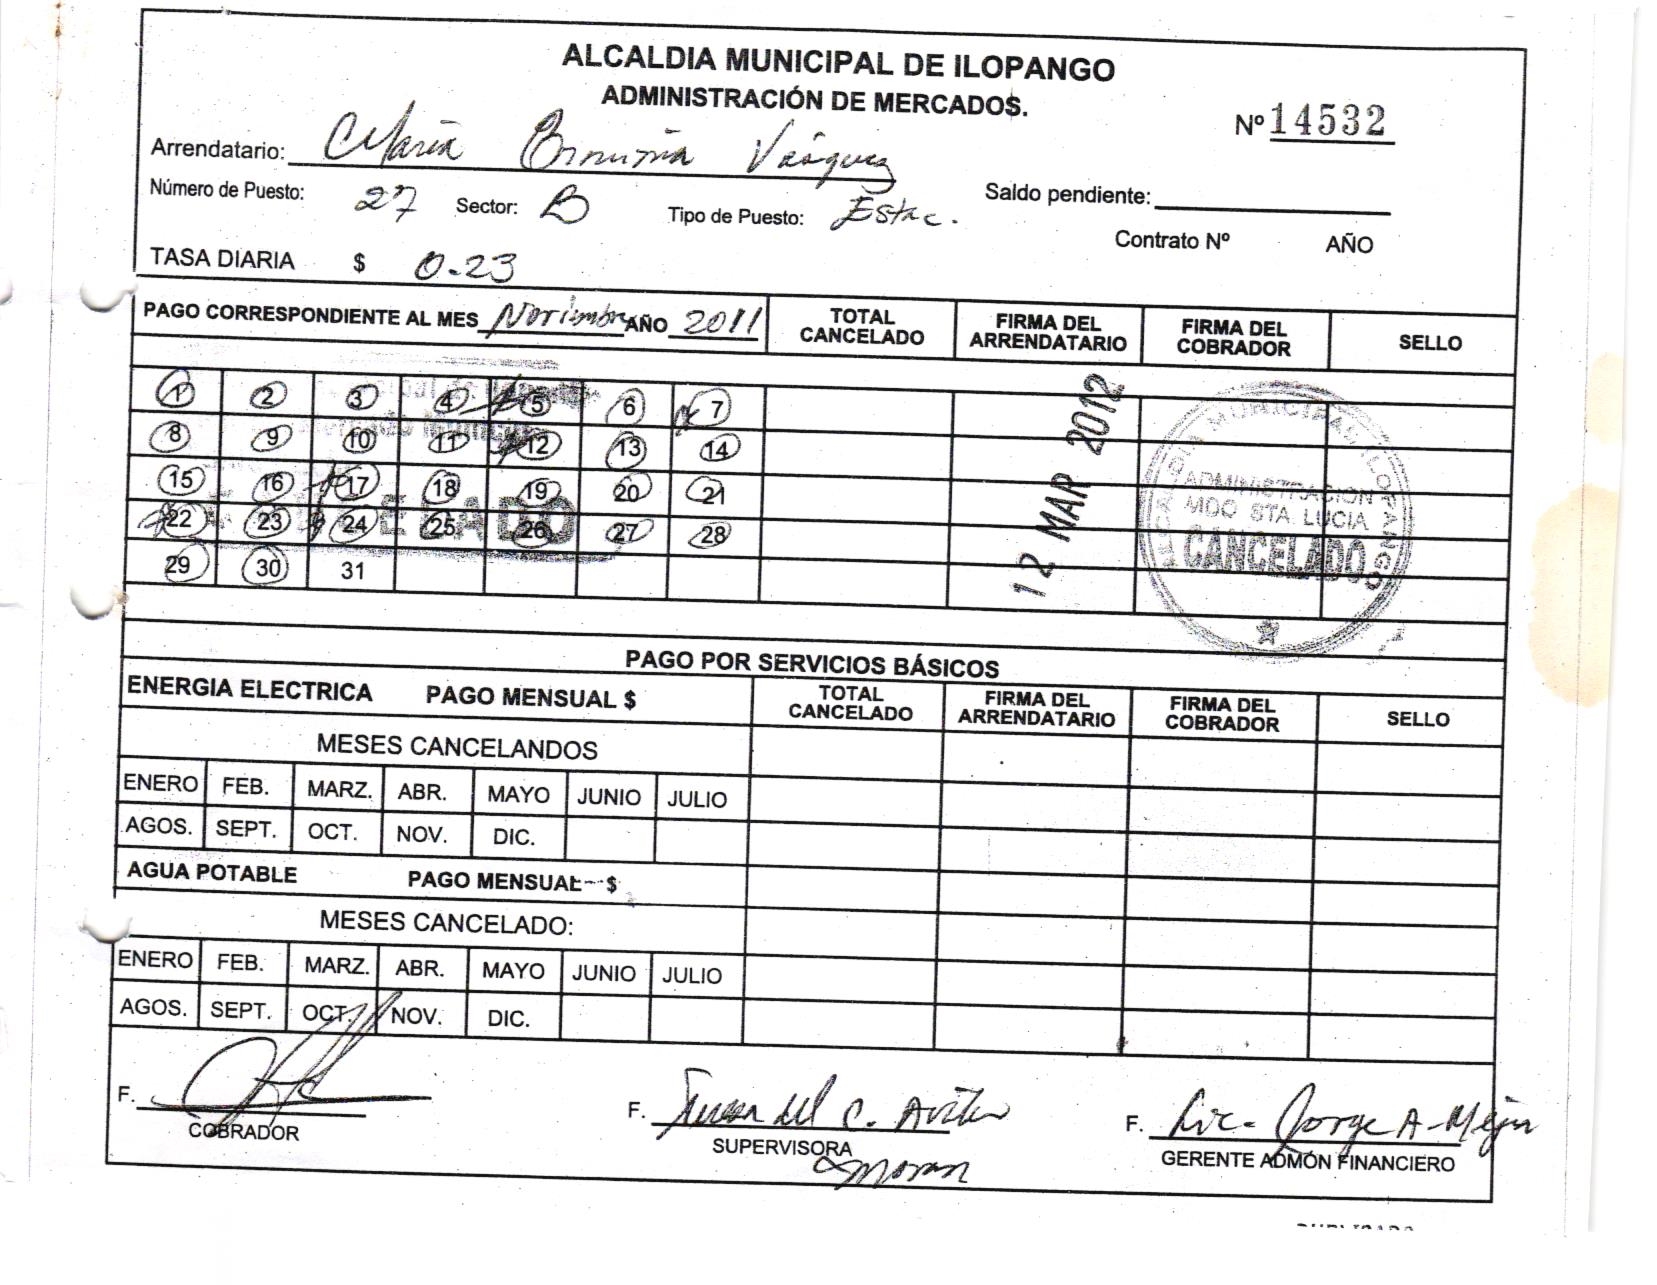 ALCALDIA MUNICIPAL DE ILOPANGO
ADMINISTRACIÓN DE MERCADOS.
Nº 14532
Arrendatario: Maria Vásquez
Número de Puesto: 27 Sector: B Tipo de Puesto: Estac.
Saldo pendiente:
Contrato Nº AÑO
TASA DIARIA $ 0.23
PAGO CORRESPONDIENTE AL MES Noviembre AÑO 2011
TOTAL CANCELADO
FIRMA DEL ARRENDATARIO
FIRMA DEL COBRADOR
SELLO
1 2 3 4 5 6 7
8 9 10 11 12 13 14
15 16 17 18 19 20 21
22 23 24 25 26 27 28
29 30 31
12 MAR 2012
ADMINISTRACION
MDO STA. LUCIA
CANCELADO
PAGO POR SERVICIOS BÁSICOS
ENERGIA ELECTRICA PAGO MENSUAL $
TOTAL CANCELADO
FIRMA DEL ARRENDATARIO
FIRMA DEL COBRADOR
SELLO
MESES CANCELANDOS
ENERO FEB. MARZ. ABR. MAYO JUNIO JULIO
AGOS. SEPT. OCT. NOV. DIC.
AGUA POTABLE PAGO MENSUAL $
MESES CANCELADO:
ENERO FEB. MARZ. ABR. MAYO JUNIO JULIO
AGOS. SEPT. OCT. NOV. DIC.
F.
COBRADOR
F. del C.
SUPERVISORA
Moran
F. Lic. Jorge A. Mejia
GERENTE ADMÓN FINANCIERO